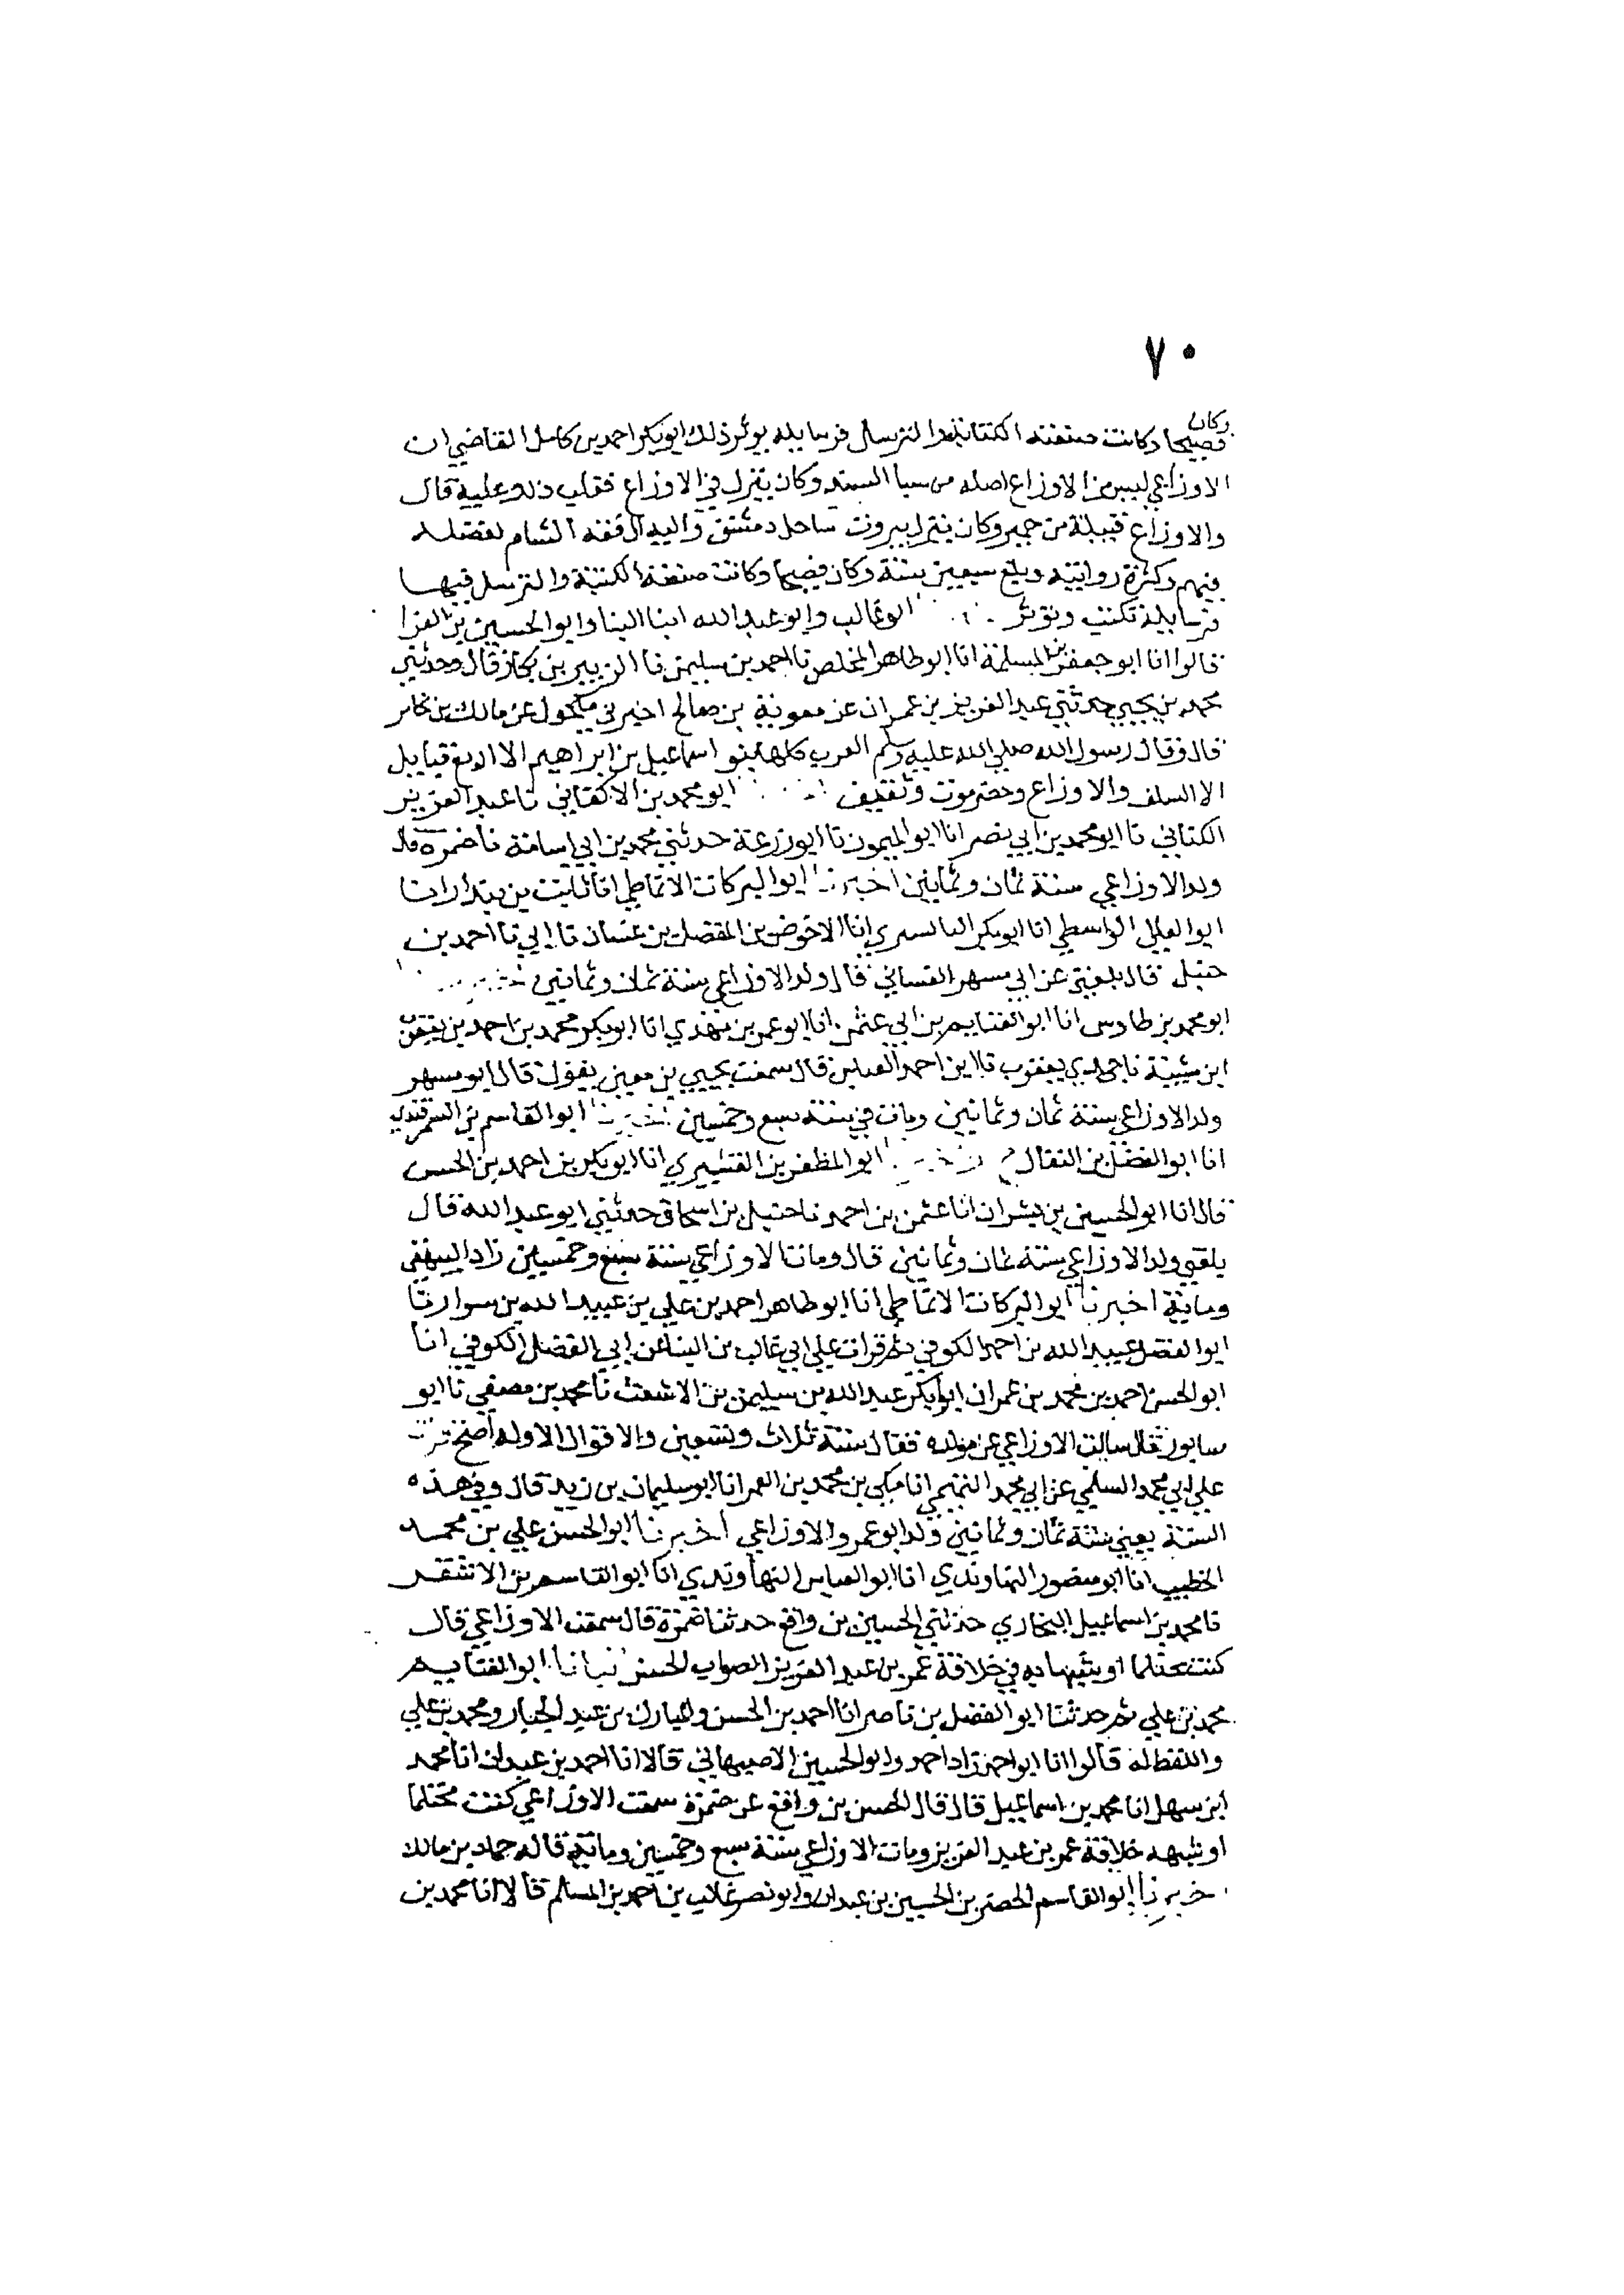 ٧٠
وكان
فصيحا وكانت صنعته الكتابة والترسل فرسايله يوثر ذلك ابو بكر احمد بن كامل القاضي ان
الاوزاعي ليس من الاوزاع اصله من سبا السند وكان ينزل في الاوزاع فغلب ذلك عليه قال
والاوزاع قبيلة من حمير وكان ينزل بيروت ساحل دمشق واليه افقه الشام لفضله
فيهم وكثرة روايته وبلغ سبعين سنة وكان فصيحا وكانت صنعته الكتبة والترسل فيها
فرسايله تكتب وتوثر ابو غالب وابو عبد الله ابنا البنا وابو الحسين بن الفرا
قالوا انا ابو جعفر بن المسلمة انا ابو طاهر المخلص نا احمد بن سليمن نا الزبير بن بكار قال وحدثني
محمد بن يحيي حدثني عبد العزيز بن عمران عن معوية بن صالح اخبرني مكحول عن مالك بن يخامر
قال وقال رسول الله صلي الله عليه وسلم العرب كلها بنو اسماعيل بن ابراهيم الا اربع قبايل
الا السلف والاوزاع وحضرموت وثقيف ابو محمد بن الاكفاني نا عبد العزيز
الكتاني نا ابو محمد بن ابي نصر انا ابو الميمون نا ابو زرعة حدثني محمد بن ابي اسامة نا ضمرة قال
ولد الاوزاعي سنة ثمان وثمانين اخبرنا ابو البركات الانماطي انا ثابت بن بندار انا
ابو العلا الواسطي انا ابو بكر البابسيري انا الاحوص بن المفضل بن غسان نا ابي نا احمد بن
حنبل قال بلغني عن ابي مسهر الغساني قال ولد الاوزاعي سنة ثمان وثمانين
ابو محمد بن طاوس انا ابو الغنايم بن ابي عثمن انا ابو عمر بن مهدي انا ابو بكر محمد بن احمد بن يعقوب
ابن شيبة نا جدي يعقوب نا ابن احمد العباس قال سمعت يحيي بن معين يقول قال ابو مسهر
ولد الاوزاعي سنة ثمان وثمانين ومات في سنة سبع وخمسين اخبرنا ابو القاسم بن السمرقندي
انا ابو الفضل بن البقال ابو المظفر بن القشيري انا ابو بكر بن احمد بن الحسن
قال انا ابو الحسين بن بشران انا عثمن بن احمد نا حنبل بن اسحاق حدثني ابو عبد الله قال
بلغني ولد الاوزاعي سنة ثمان وثمانين قال ومات الاوزاعي سنة سبع وخمسين زاد البيهقي
وماية اخبرنا ابو البركات الانماطي انا ابو طاهر احمد بن علي بن عبيد الله بن سوار نا
ابو الفضل عبيد الله بن احمد الكوفي قرات علي ابي غالب بن البنا عن ابي الفضل الكوفي انا
ابو الحسن احمد بن محمد بن عمران ابو بكر عبد الله بن سليمن بن الاشعث نا محمد بن مصفي نا ابو
سابور قال سالت الاوزاعي عن مولده فقال سنة ثلاث وتسعين والاقوال الاوله اصح قرات
علي ابي محمد السلمي عن ابي محمد التميمي انا مكي بن محمد بن الغمر انا ابو سليمان بن زيد قال وفي هذه
السنة يعني سنة ثمان وثمانين ولد ابو عمرو الاوزاعي اخبرنا ابو الحسن علي بن محمد
الخطيب انا ابو منصور النهاوندي انا ابو العباس النهاوندي انا ابو القاسم بن الاشقر
نا محمد بن اسماعيل البخاري حدثني الحسين بن واقع حدثنا ضمرة قال سمعت الاوزاعي قال
كنت محتلما او شبيها به في خلافة عمر بن عبد العزيز الصواب الحسن انبانا ابو الغنايم
محمد بن علي ثم حدثنا ابو الفضل بن ناصر انا احمد بن الحسن والمبارك بن عبد الجبار ومحمد بن علي
واللفظ له قالوا انا ابو احمد زاد احمد وابو الحسين الاصبهاني قالا انا احمد بن عبدان انا محمد
ابن سهل انا محمد بن اسماعيل قال قال الحسن بن واقع عن ضمرة سمعت الاوزاعي كنت محتلما
او شبهه خلافة عمر بن عبد العزيز ومات الاوزاعي سنة سبع وخمسين وماية قاله حماد بن مالك
اخبرنا ابو القاسم الخضر بن الحسين بن عبدان وابو نصر غالب بن احمد بن المسلم قالا انا محمد بن